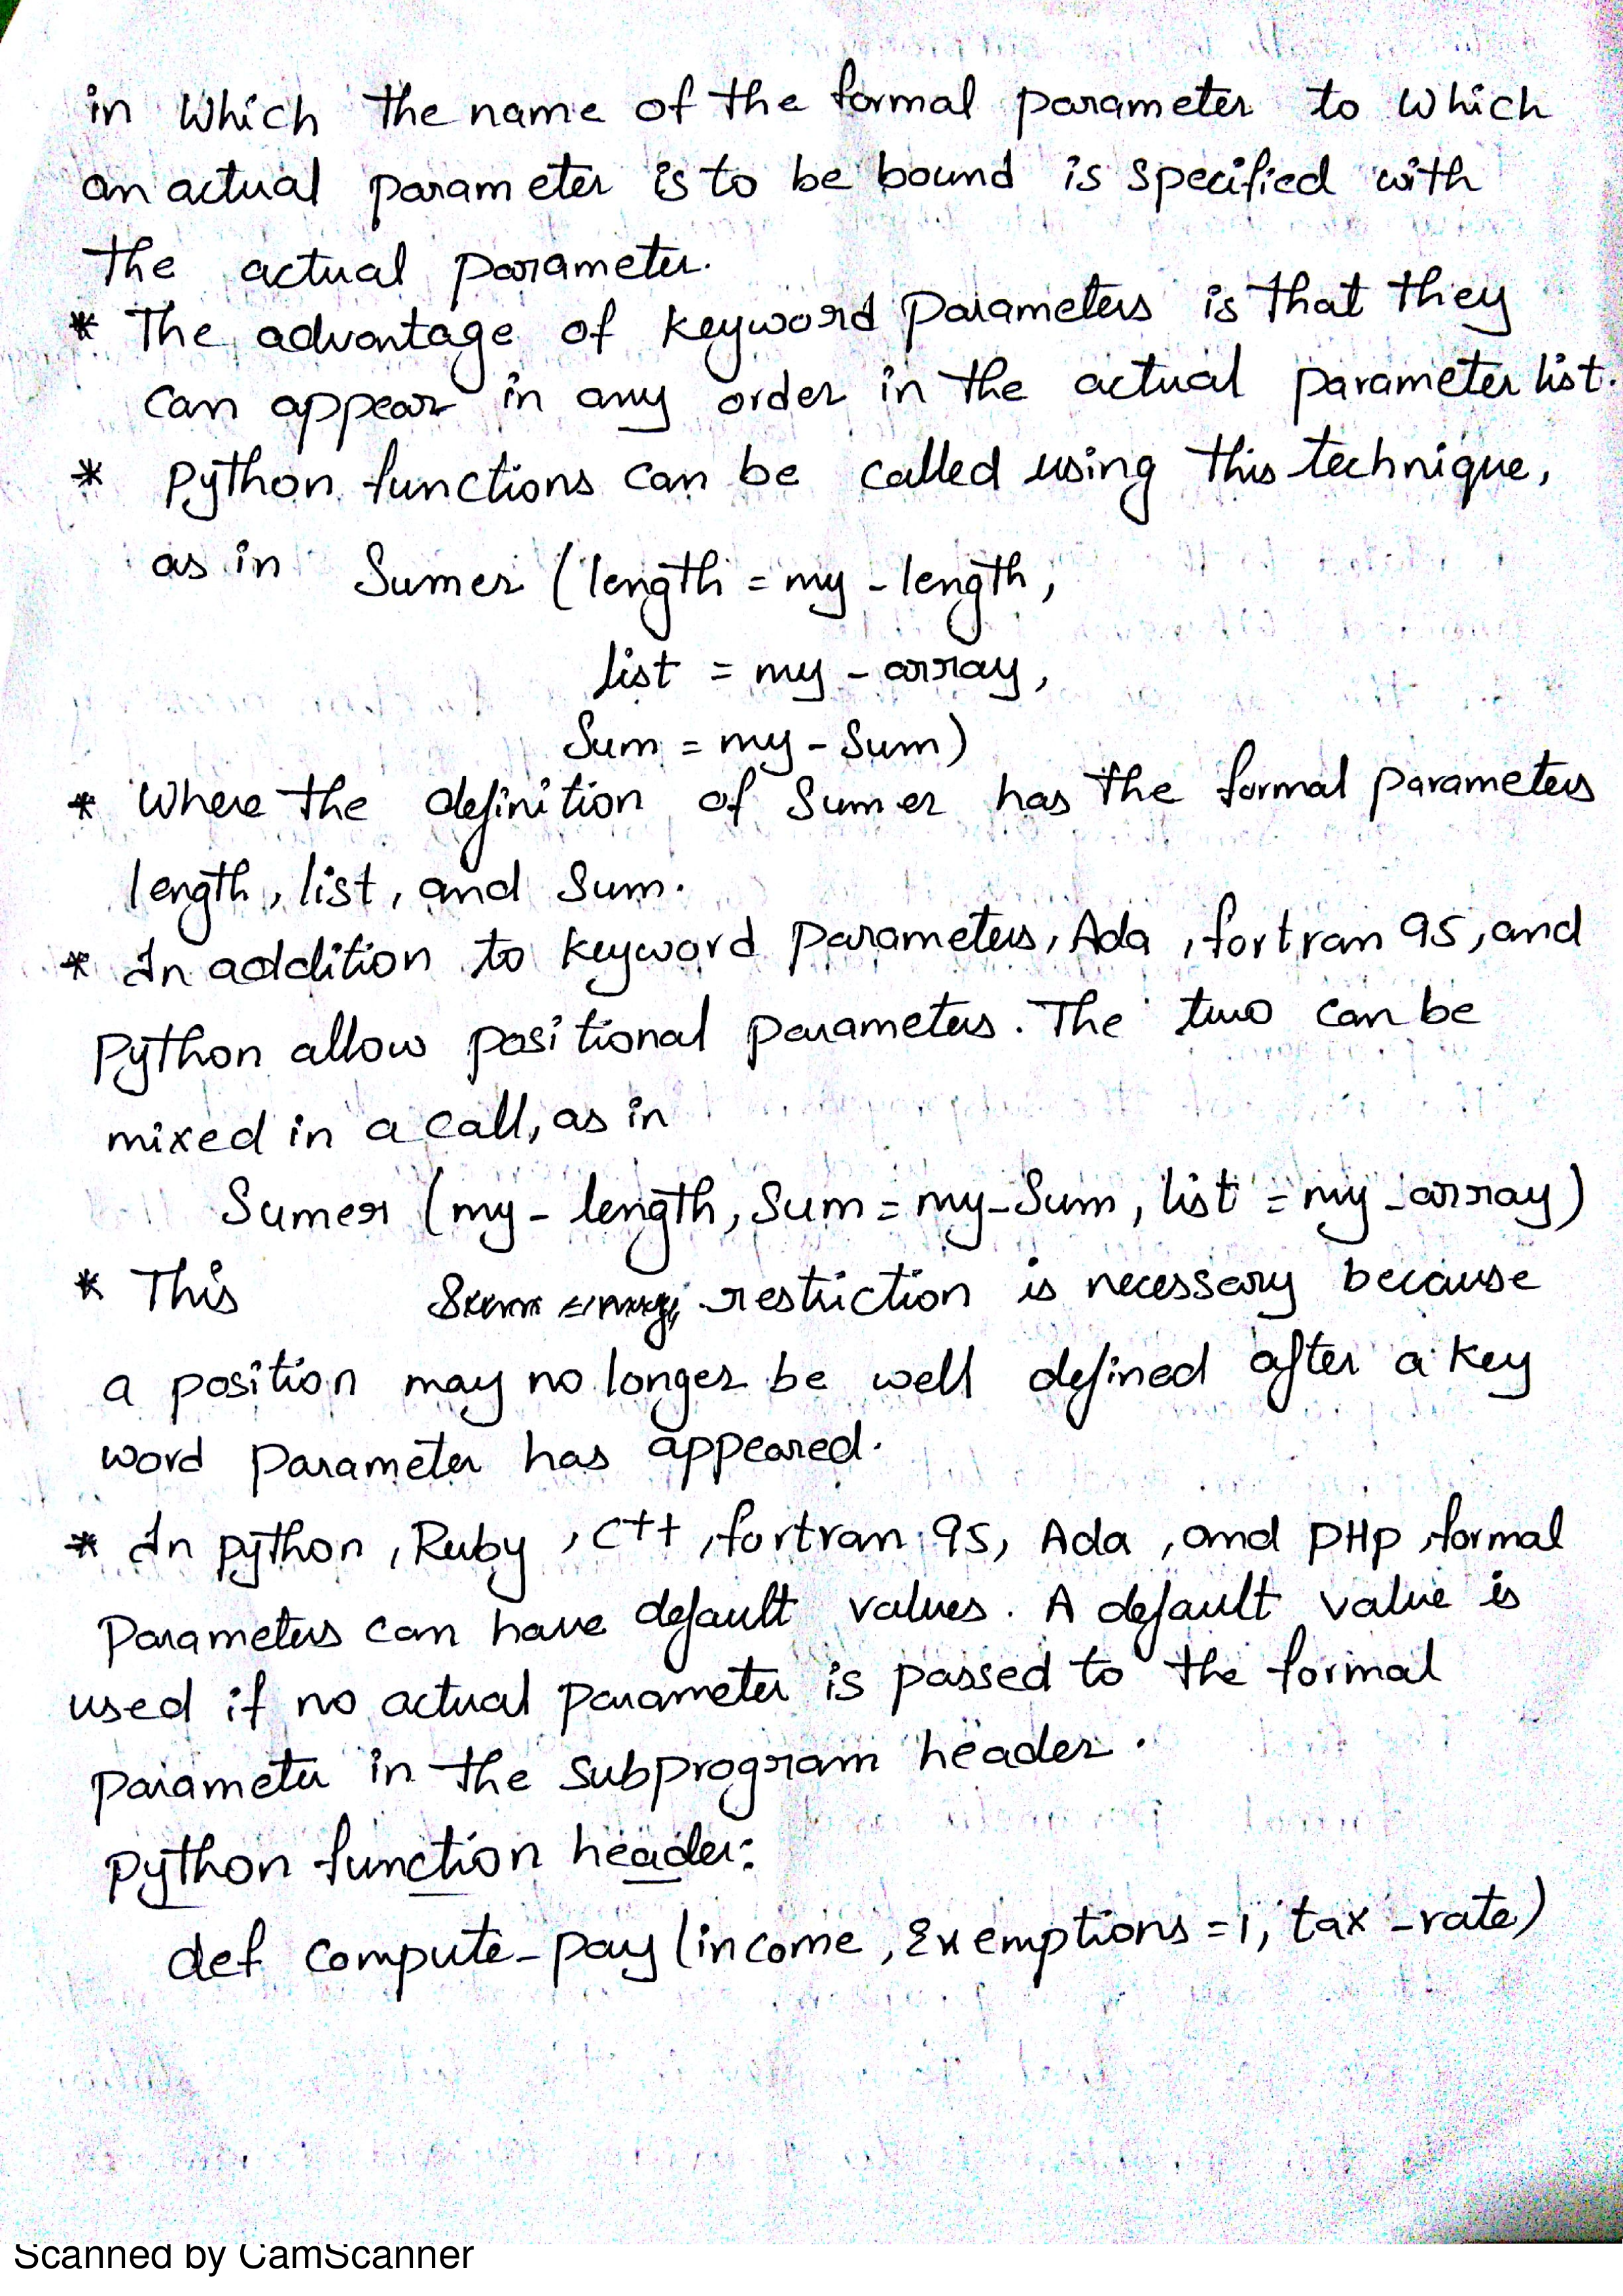 in Which the name of the formal parameter to which
an actual parameter is to be bound is specified with
the actual parameter.
* The advantage of keyword parameters is that they
can appear in any order in the actual parameter list.
* Python functions can be called using this technique,
as in Sumer (length = my - length,
list = my - array,
Sum = my - Sum)
* Where the definition of Sumer has the formal parameters
length, list, and Sum.
* In addition to keyword parameters, Ada, fortran 95, and
Python allow positional parameters. The two can be
mixed in a call, as in
Sumer (my - length, Sum = my - Sum, list = my - array)
* This restriction is necessary because
a position may no longer be well defined after a key
word parameter has appeared.
* In python, Ruby, C++, fortran 95, Ada, and PHP, formal
Parameters can have default values. A default value is
used if no actual parameter is passed to the formal
parameter in the subprogram header.
python function header:
def compute_pay (income, Exemptions = 1, tax_rate)
Scanned by CamScanner